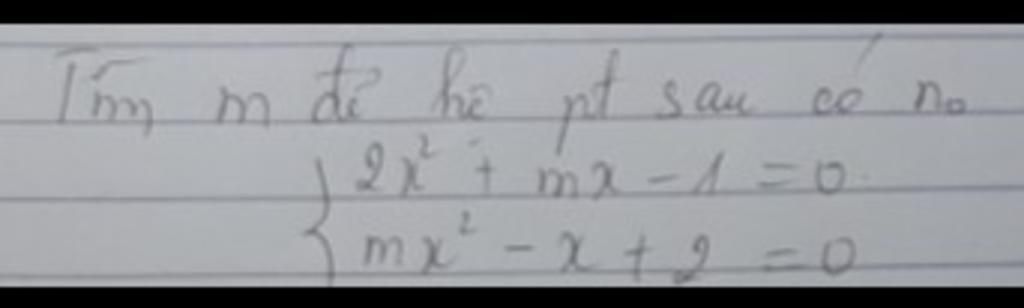 Tìm m để hê pt sau có no
2x² + mx - 1 = 0
mx² - x + 2 = 0